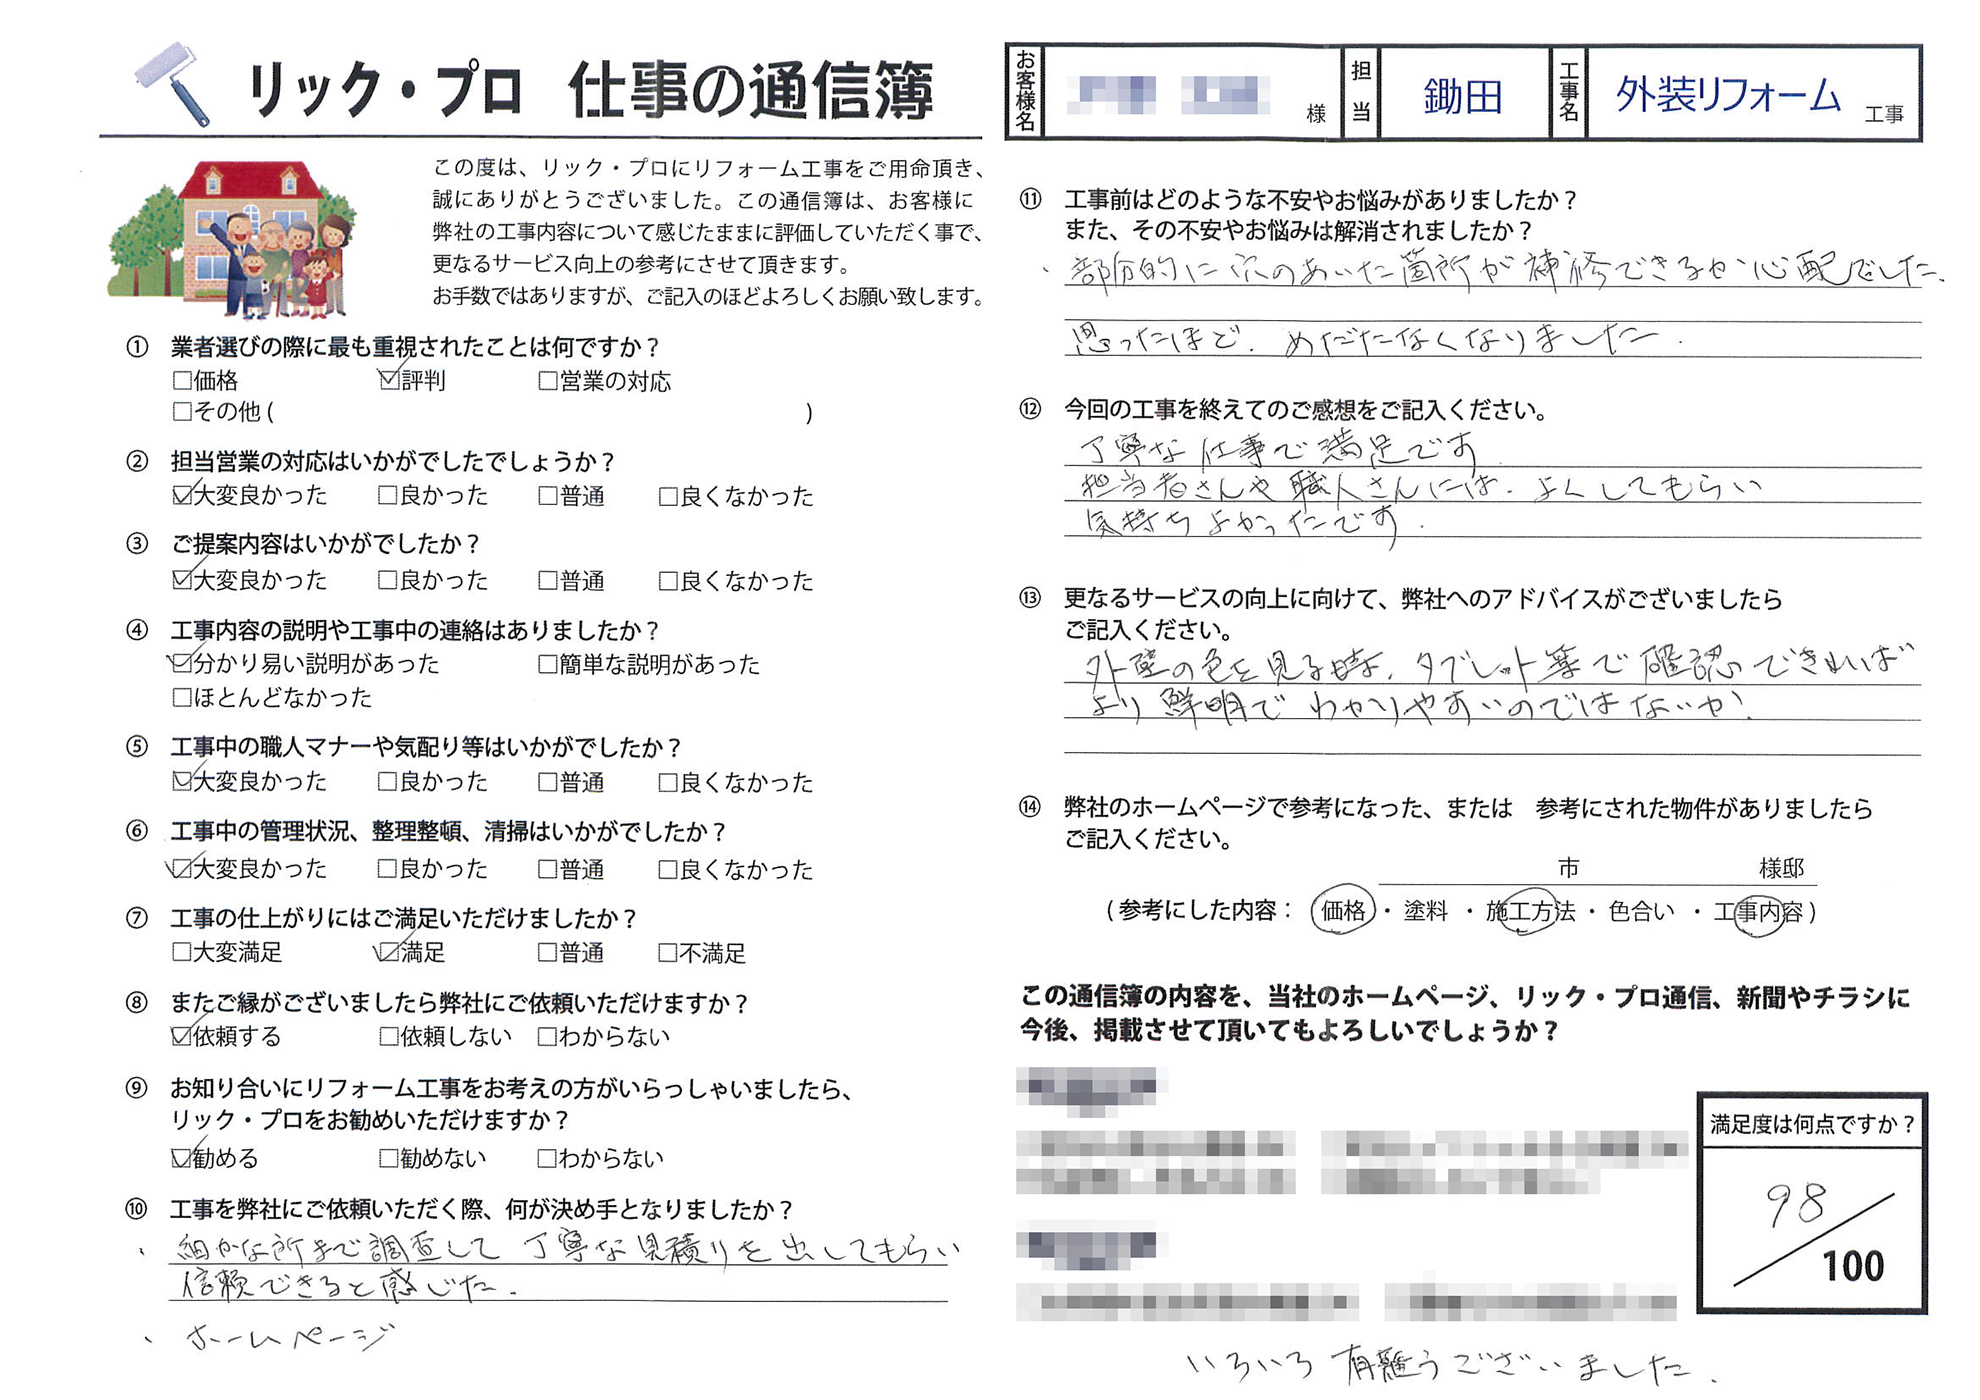 リック・プロ 仕事の通信簿
この度は、リック・プロにリフォーム工事をご用命頂き、
誠にありがとうございました。この通信簿は、お客様に
弊社の工事内容について感じたままに評価していただく事で、
更なるサービス向上の参考にさせて頂きます。
お手数ではありますが、ご記入のほどよろしくお願い致します。
① 業者選びの際に最も重視されたことは何ですか？
□価格 ☑評判 □営業の対応
□その他 ( )
② 担当営業の対応はいかがでしたでしょうか？
☑大変良かった □良かった □普通 □良くなかった
③ ご提案内容はいかがでしたか？
☑大変良かった □良かった □普通 □良くなかった
④ 工事内容の説明や工事中の連絡はありましたか？
☑分かり易い説明があった □簡単な説明があった
□ほとんどなかった
⑤ 工事中の職人マナーや気配り等はいかがでしたか？
☑大変良かった □良かった □普通 □良くなかった
⑥ 工事中の管理状況、整理整頓、清掃はいかがでしたか？
☑大変良かった □良かった □普通 □良くなかった
⑦ 工事の仕上がりにはご満足いただけましたか？
□大変満足 ☑満足 □普通 □不満足
⑧ またご縁がございましたら弊社にご依頼いただけますか？
☑依頼する □依頼しない □わからない
⑨ お知り合いにリフォーム工事をお考えの方がいらっしゃいましたら、
リック・プロをお勧めいただけますか？
☑勧める □勧めない □わからない
⑩ 工事を弊社にご依頼いただく際、何が決め手となりましたか？
・細かな所まで調査して丁寧な見積りを出してもらい
信頼できると感じた.
・ホームページ
お客様名 様 担当 鋤田 工事名 外装リフォーム 工事
⑪ 工事前はどのような不安やお悩みがありましたか？
また、その不安やお悩みは解消されましたか？
・部分的に穴のあいた箇所が補修できるか心配でした.
思ったほど. めだたなくなりました.
⑫ 今回の工事を終えてのご感想をご記入ください。
丁寧な仕事で満足です
担当者さんや職人さんには. よくしてもらい
気持ちよかったです.
⑬ 更なるサービスの向上に向けて、弊社へのアドバイスがございましたら
ご記入ください。
外壁の色を見る時は. タブレット等で確認できれば
より鮮明でわかりやすいのではないか.
⑭ 弊社のホームページで参考になった、または 参考にされた物件がありましたら
ご記入ください。
市 様邸
( 参考にした内容： 価格 ・ 塗料 ・ 施工方法 ・ 色合い ・ 工事内容 )
この通信簿の内容を、当社のホームページ、リック・プロ通信、新聞やチラシに
今後、掲載させて頂いてもよろしいでしょうか？
満足度は何点ですか？
98/100
いろいろ有難うございました.